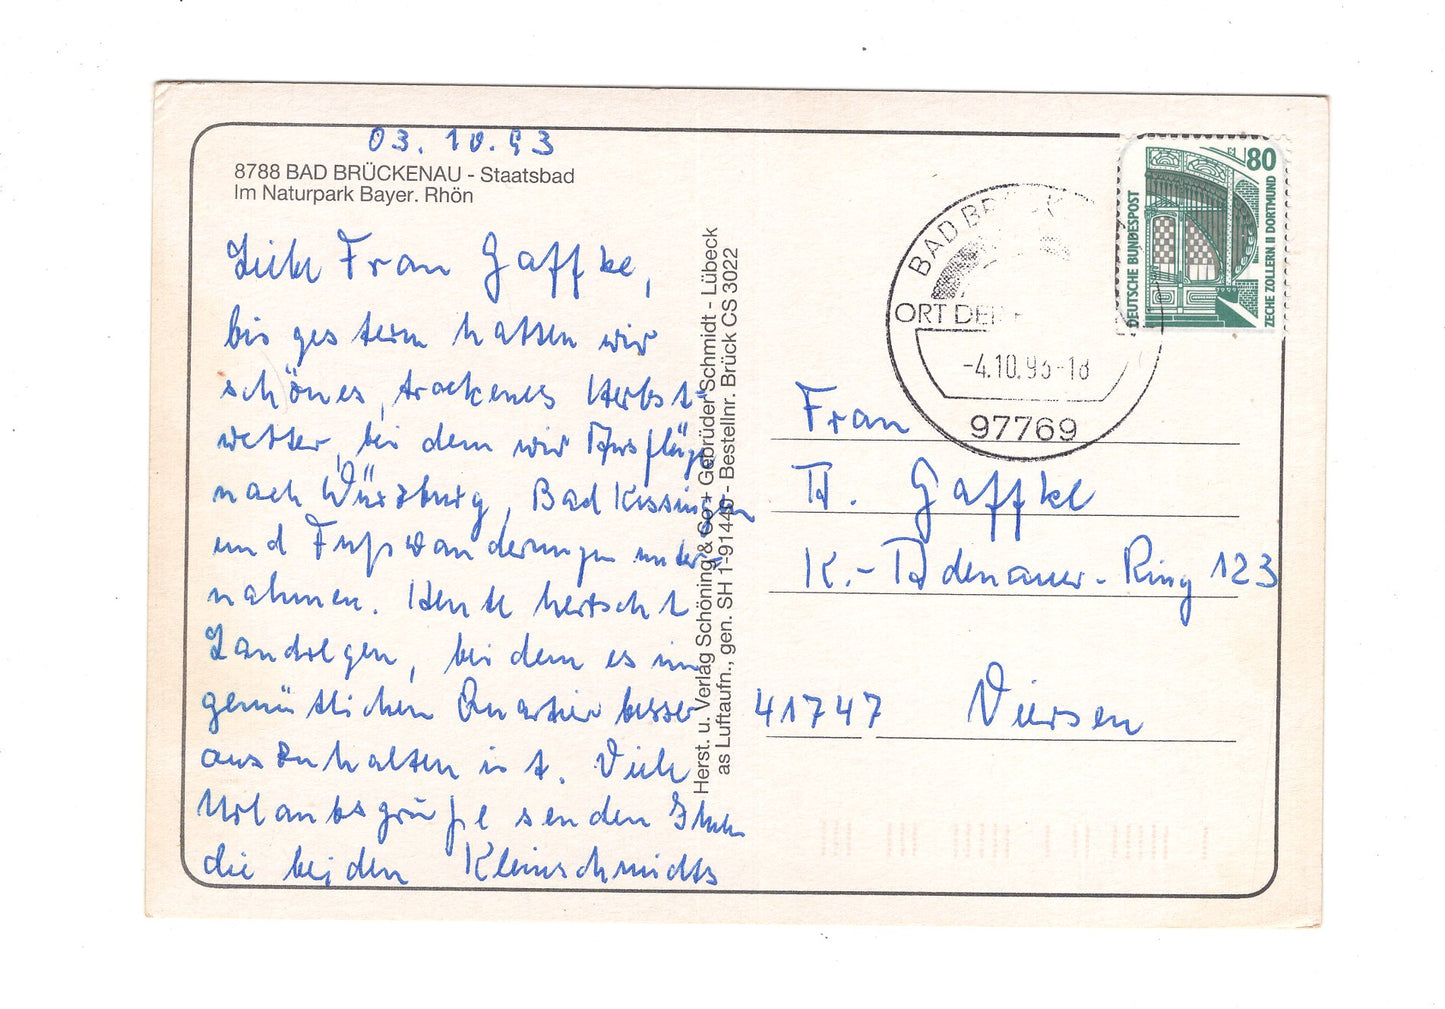 03.10.93
8788 BAD BRÜCKENAU - Staatsbad
Im Naturpark Bayer. Rhön
Liebe Frau Gaffke,
bis gestern hatten wir
schönes, trockenes Herbst-
wetter, bei dem wir Ausflüge
nach Würzburg, Bad Kissingen
und Fußwanderungen unter-
nahmen. Heute herrscht
Landregen, bei dem es im
gemütlichen Quartier besser
auszuhalten ist. Viele
Urlaubsgrüße senden Ihnen
die beiden Kleinschmidts
Herst. u. Verlag Schöning & Co + Gebrüder Schmidt - Lübeck
as Luftaufn., gen. SH 1-91440 - Bestellnr. Brück CS 3022
BAD
ORT
-4.10.93-18
97769
80
DEUTSCHE BUNDESPOST
ZECHE ZOLLERN II DORTMUND
Frau
A. Gaffke
K.-Adenauer-Ring 123
41747 Viersen